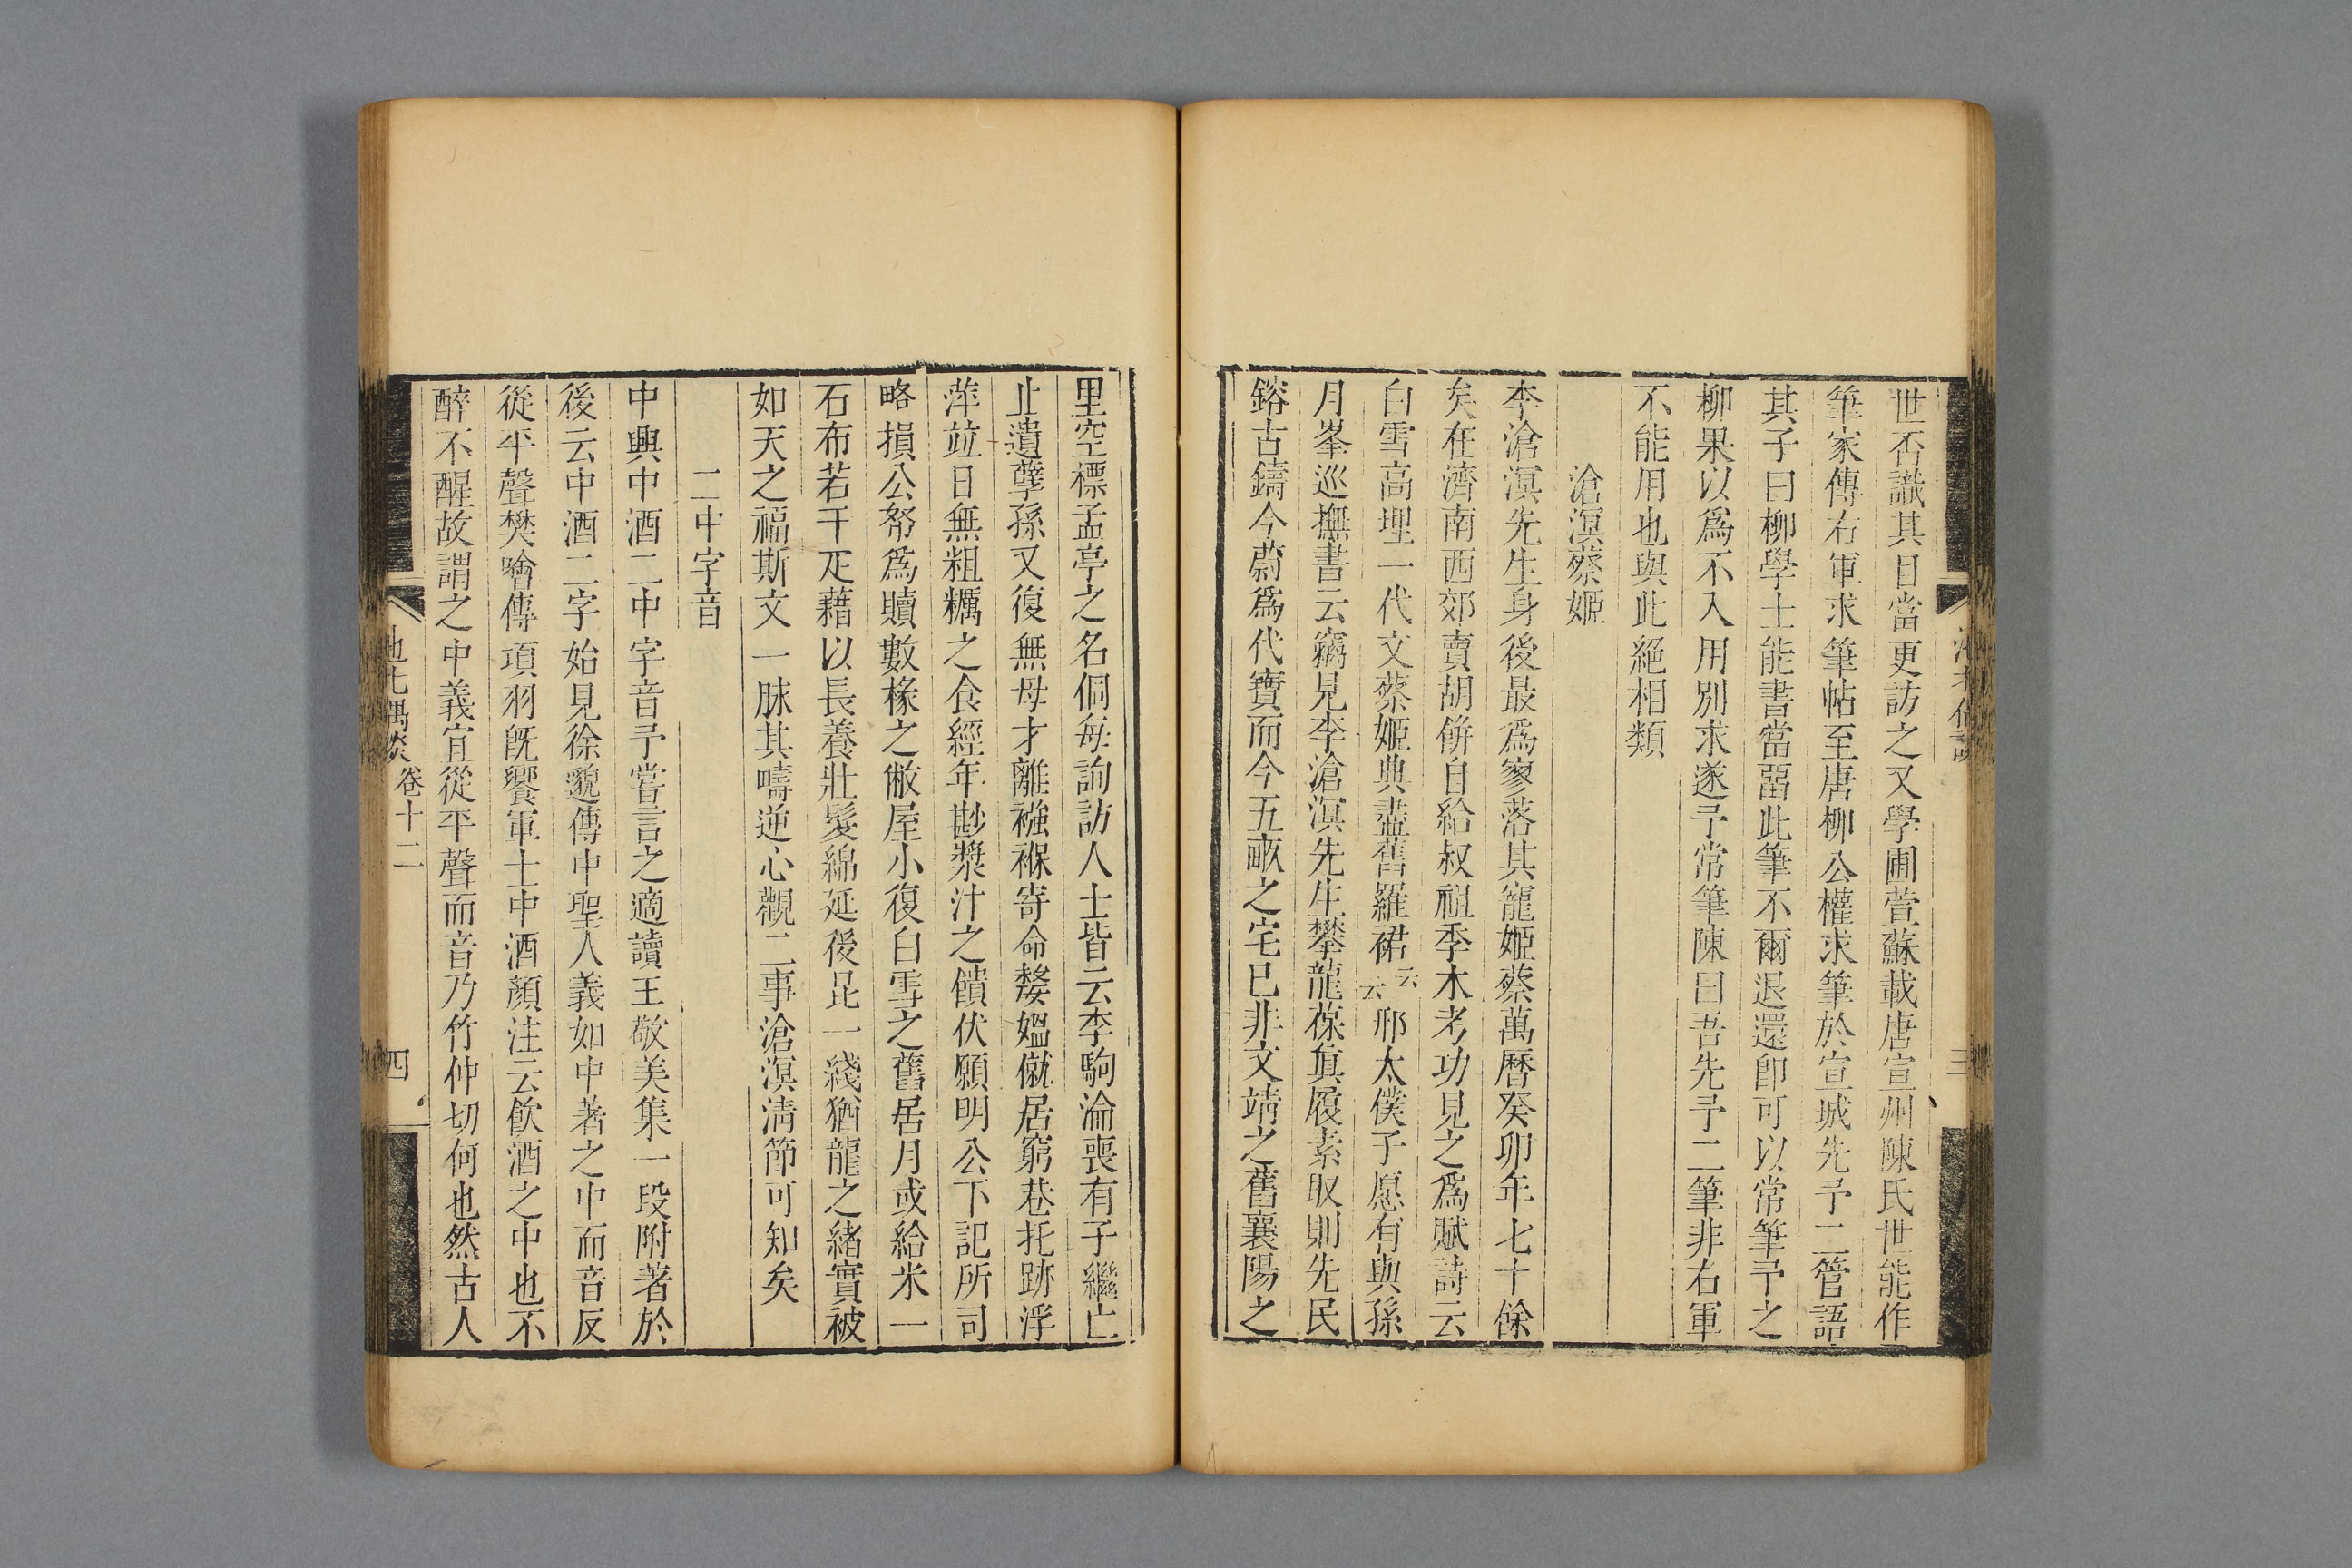 世否識其日當更訪之又學圃萱蘇載唐宣州陳氏世能作
筆家傳右軍求筆帖至唐柳公權求筆於宣城先予二管語
其子曰柳學士能書當畱此筆不爾退還即可以常筆予之
柳果以爲不入用別求遂予常筆陳曰吾先予二筆非右軍
不能用也與此絶相類
滄溟蔡姬
李滄溟先生身後最爲寥落其寵姬蔡萬曆癸卯年七十餘
矣在濟南西郊賣胡餅自給叔祖季木考功見之爲賦詩云
白雪高埋一代文蔡姬典盡舊羅裙云云邢太僕子愿有與孫
月峯巡撫書云竊見李滄溟先生攀龍葆眞履素取則先民
鎔古鑄今蔚爲代寶而今五畝之宅已非文靖之舊襄陽之
里空標孟亭之名侗每詢訪人士皆云李駒淪喪有子繼亡
止遺孽孫又復無母才離襁褓寄命嫠媼僦居窮巷托跡浮
萍竝日無粗糲之食經年尠漿汁之饋伏願明公下記所司
略損公帑爲贖數椽之敝屋小復白雪之舊居月或給米一
石布若干疋藉以長養壯髮綿延後昆一綫猶龍之緒實被
如天之福斯文一脉其疇逆心觀二事滄溟淸節可知矣
二中字音
中興中酒二中字音予嘗言之適讀王敬美集一段附著於
後云中酒二字始見徐邈傳中聖人義如中著之中而音反
從平聲樊噲傳項羽旣饗軍士中酒顏注云飮酒之中也不
醉不醒故謂之中義宜從平聲而音乃竹仲切何也然古人
卷十二
四
三